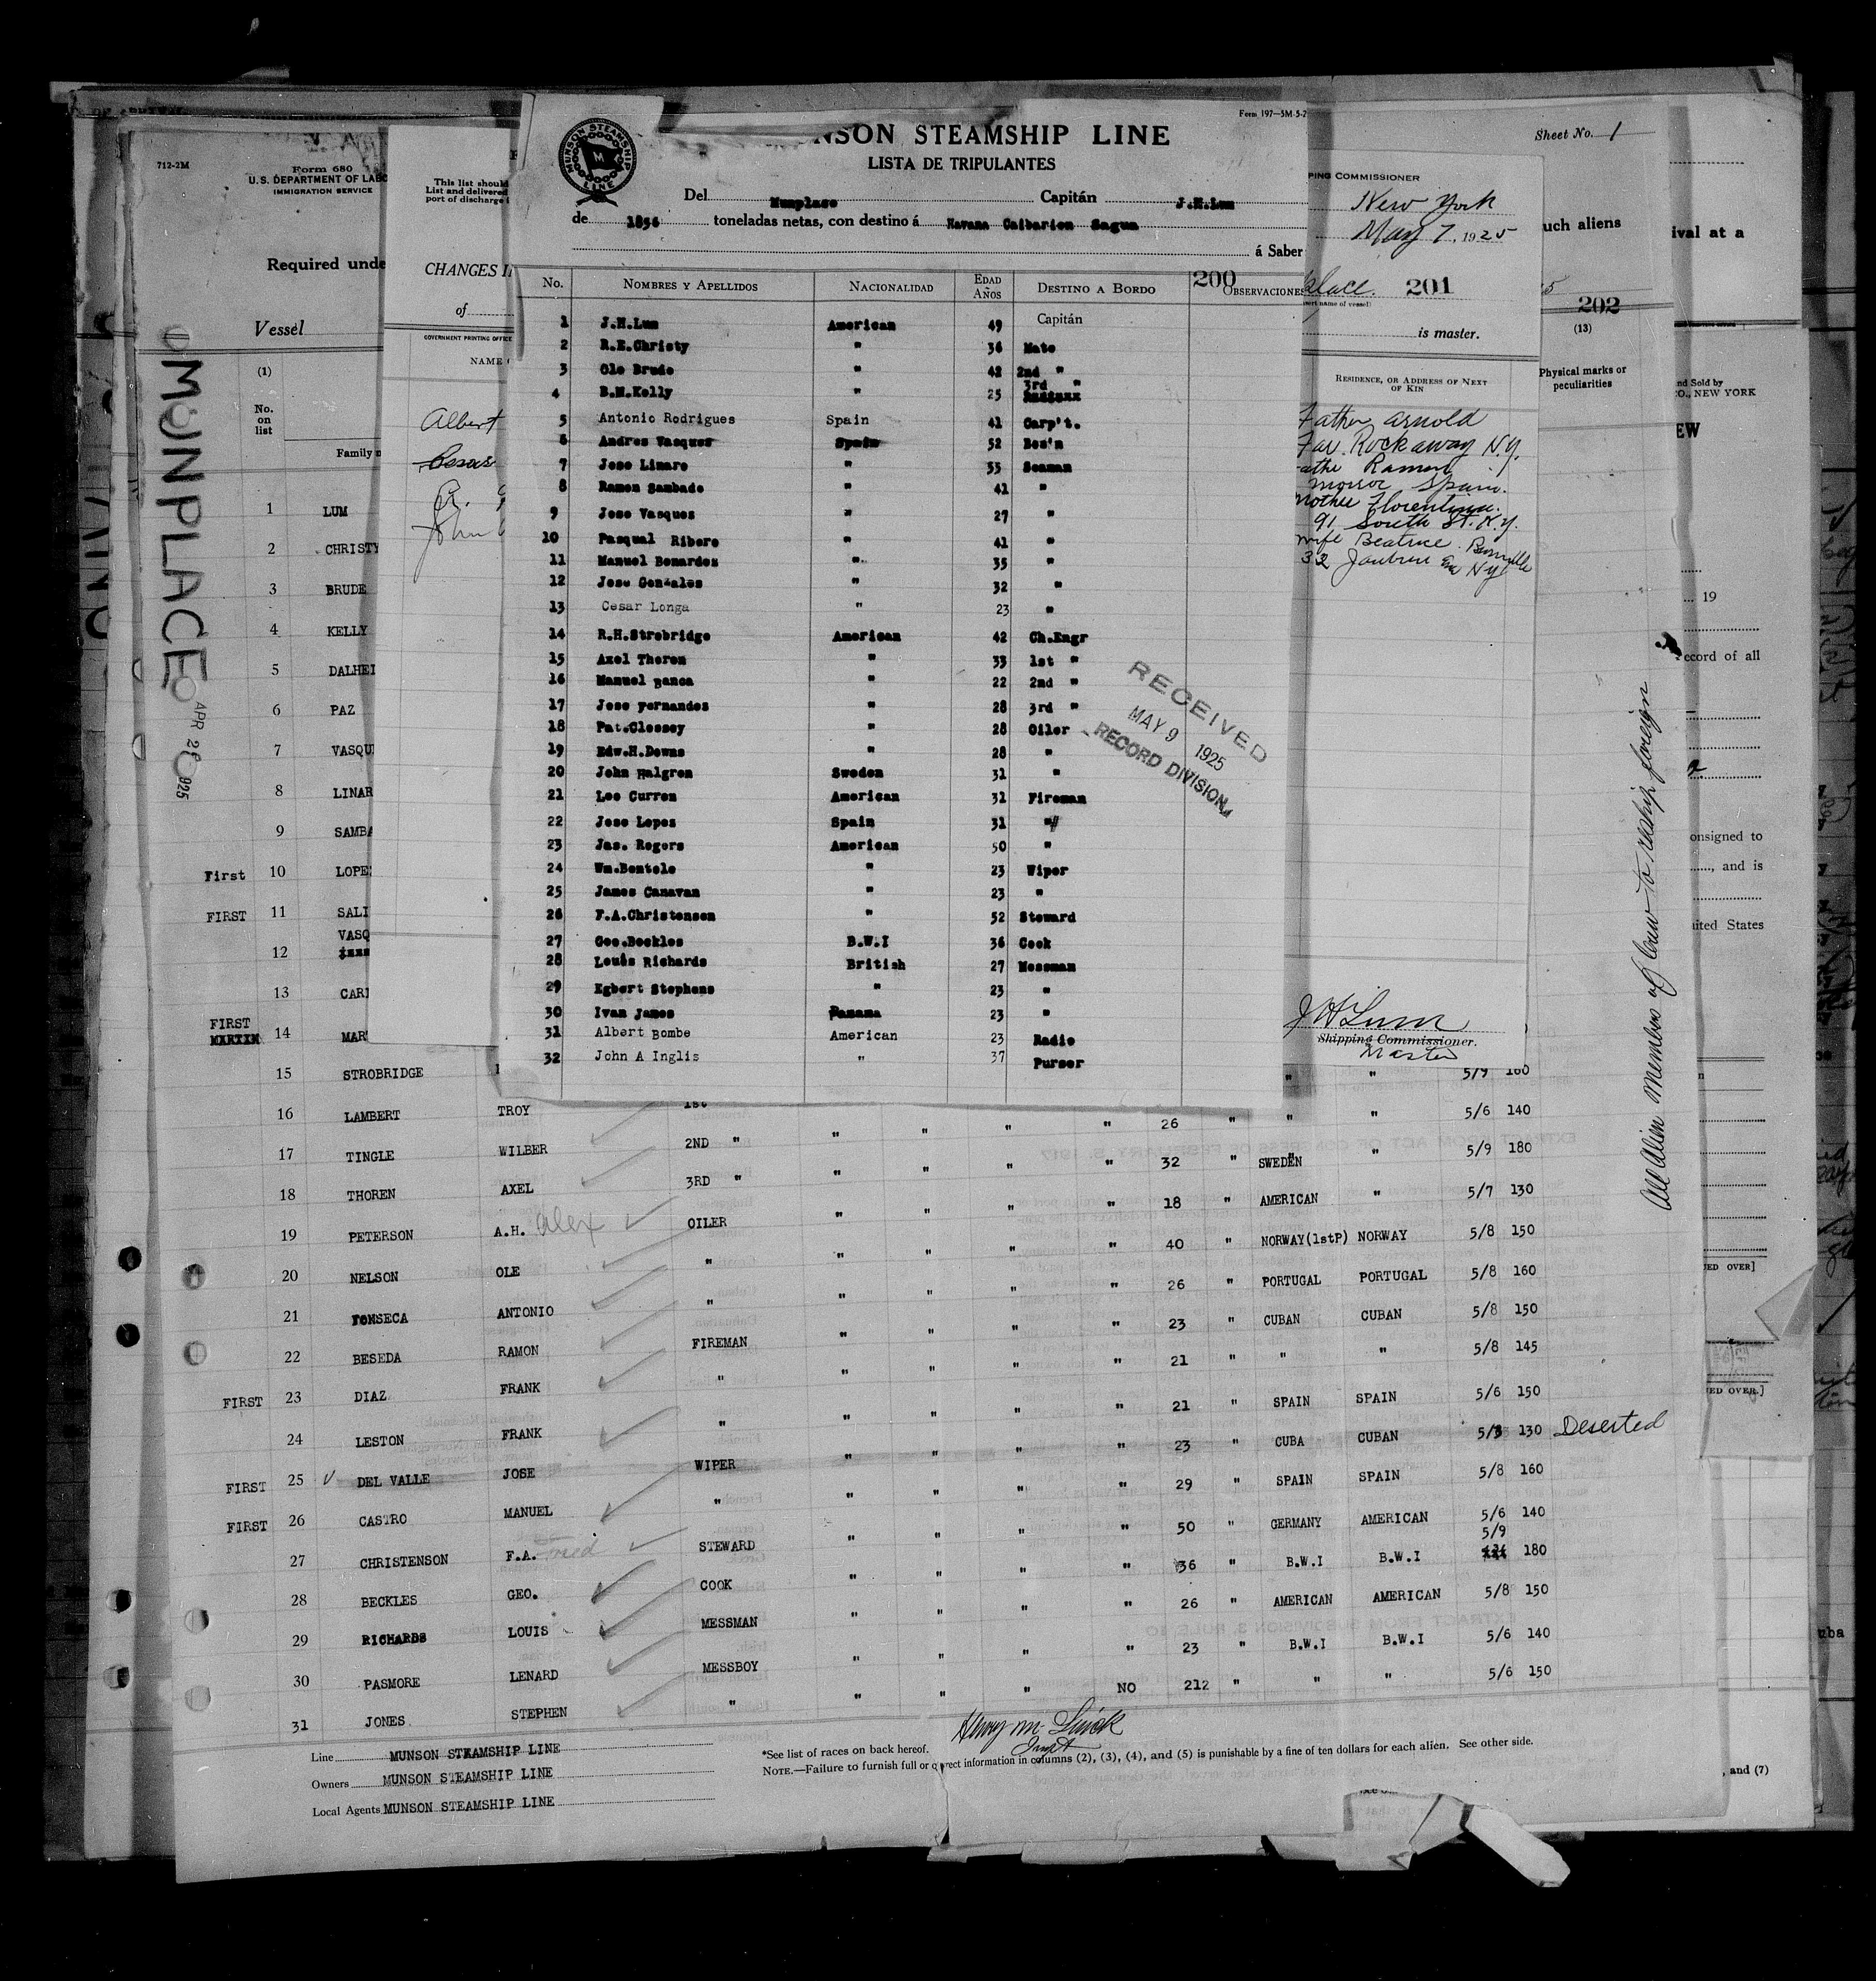 Form 197—5M-5-2
MUNSON STEAMSHIP LINE
NSON STEAMSHIP LINE
LISTA DE TRIPULANTES
Del Munplace Capitán J.H.Lum
de 1856 toneladas netas, con destino á Havana Caibarien Sagua
á Saber
No. NOMBRES Y APELLIDOS NACIONALIDAD EDAD AÑOS DESTINO A BORDO 200 OBSERVACIONES
1 J.H.Lum American 49 Capitán
2 R.E.Christy " 36 Mate
3 Ole Brude " 42 2nd "
4 B.M.Kelly " 25 3rd "
5 Antonio Rodrigues Spain 41 Carp't.
6 Andres Vasques Spain 52 Bos'n
7 Jose Linare " 33 Seaman
8 Ramon Sambade " 41 "
9 Jose Vasques " 27 "
10 Pasqual Ribero " 41 "
11 Manuel Benardez " 35 "
12 Jose Gonzales " 32 "
13 Cesar Longa " 23 "
14 R.H.Strobridge American 42 Ch.Engr
15 Axel Thoren " 33 1st "
16 Manuel Banca " 22 2nd "
17 Jose Fernandes " 28 3rd "
18 Pat.Clossey " 28 Oiler
19 Edw.H.Downs " 28 "
20 John Halgren Sweden 31 "
21 Leo Curren American 31 Fireman
22 Jose Lopez Spain 31 "
23 Jas. Rogers American 50 "
24 Wm.Bentele " 23 Wiper
25 James Canavan " 23 "
26 F.A.Christensen " 52 Steward
27 Geo.Beckles B.W.I 36 Cook
28 Louis Richards British 27 Messman
29 Egbert Stephens " 23 "
30 Ivan James Panama 23 "
31 Albert Bombe American 23 Radio
32 John A Inglis " 37 Purser
RECEIVED
MAY 9 1925
RECORD DIVISION
712-2M
Form 680
U.S. DEPARTMENT OF LABO
IMMIGRATION SERVICE
Required unde
Vessel
(1)
No. on list
Family n
MUNPLACE
APR 2 1925
This list should
List and delivered
port of discharge
CHANGES I
of
GOVERNMENT PRINTING OFFICE
NAME
Albert
John
PING COMMISSIONER
New York
May 7, 1925
place. 201
name of vessel)
is master.
RESIDENCE, OR ADDRESS OF NEXT OF KIN
Father Arnold
Far Rockaway N.Y.
Ramon
Spain.
Mother Florentina.
91 South St. N.Y.
wife Beatrice
32 N Y
J H Lum
Shipping Commissioner.
Master
Sheet No. 1
uch aliens
5
202
(13)
Physical marks or peculiarities
All Alien Members of Crew to reship foreign
ival at a
nd Sold by
CO., NEW YORK
EW
19
ecord of all
onsigned to
, and is
ited States
ED OVER]
ED OVER.]
, and (7)
uba
1 LUM
2 CHRISTY
3 BRUDE
4 KELLY
5 DALHEI
6 PAZ
7 VASQU
8 LINAR
9 SAMBA
First 10 LOPE
FIRST 11 SALI
12 VASQ
13 CARI
FIRST 14 MAR
15 STROBRIDGE " " 5/9 160
16 LAMBERT TROY 1st " 26 " " " 5/6 140
17 TINGLE WILBER 2ND " " " " " 32 " SWEDEN " 5/9 180
18 THOREN AXEL 3RD " " " " " 18 " AMERICAN " 5/7 130
19 PETERSON A.H. Alex OILER " " " " 40 " NORWAY(1stP) NORWAY 5/8 150
20 NELSON OLE " " " " " 26 " PORTUGAL PORTUGAL 5/8 160
21 FONSECA ANTONIO " " " " " 23 " CUBAN CUBAN 5/8 150
22 BESEDA RAMON FIREMAN " " " " 21 " " " 5/8 145
FIRST 23 DIAZ FRANK " " " " " 21 " SPAIN SPAIN 5/6 150
24 LESTON FRANK " " " " " 23 " CUBA CUBAN 5/8 130 Deserted
FIRST 25 DEL VALLE JOSE WIPER " " " " 29 " SPAIN SPAIN 5/8 160
FIRST 26 CASTRO MANUEL " " " " " 50 " GERMANY AMERICAN 5/6 140
27 CHRISTENSON F.A. Fred STEWARD " " " " 36 " B.W.I B.W.I 5/9 180
28 BECKLES GEO. COOK " " " " 26 " AMERICAN AMERICAN 5/8 150
29 RICHARDS LOUIS MESSMAN " " " " 23 " B.W.I B.W.I 5/6 140
30 PASMORE LENARD MESSBOY " " " NO 212 " " " 5/6 150
31 JONES STEPHEN " " "
Line MUNSON STEAMSHIP LINE
Owners MUNSON STEAMSHIP LINE
Local Agents MUNSON STEAMSHIP LINE
*See list of races on back hereof.
NOTE.—Failure to furnish full or correct information in columns (2), (3), (4), and (5) is punishable by a fine of ten dollars for each alien. See other side.